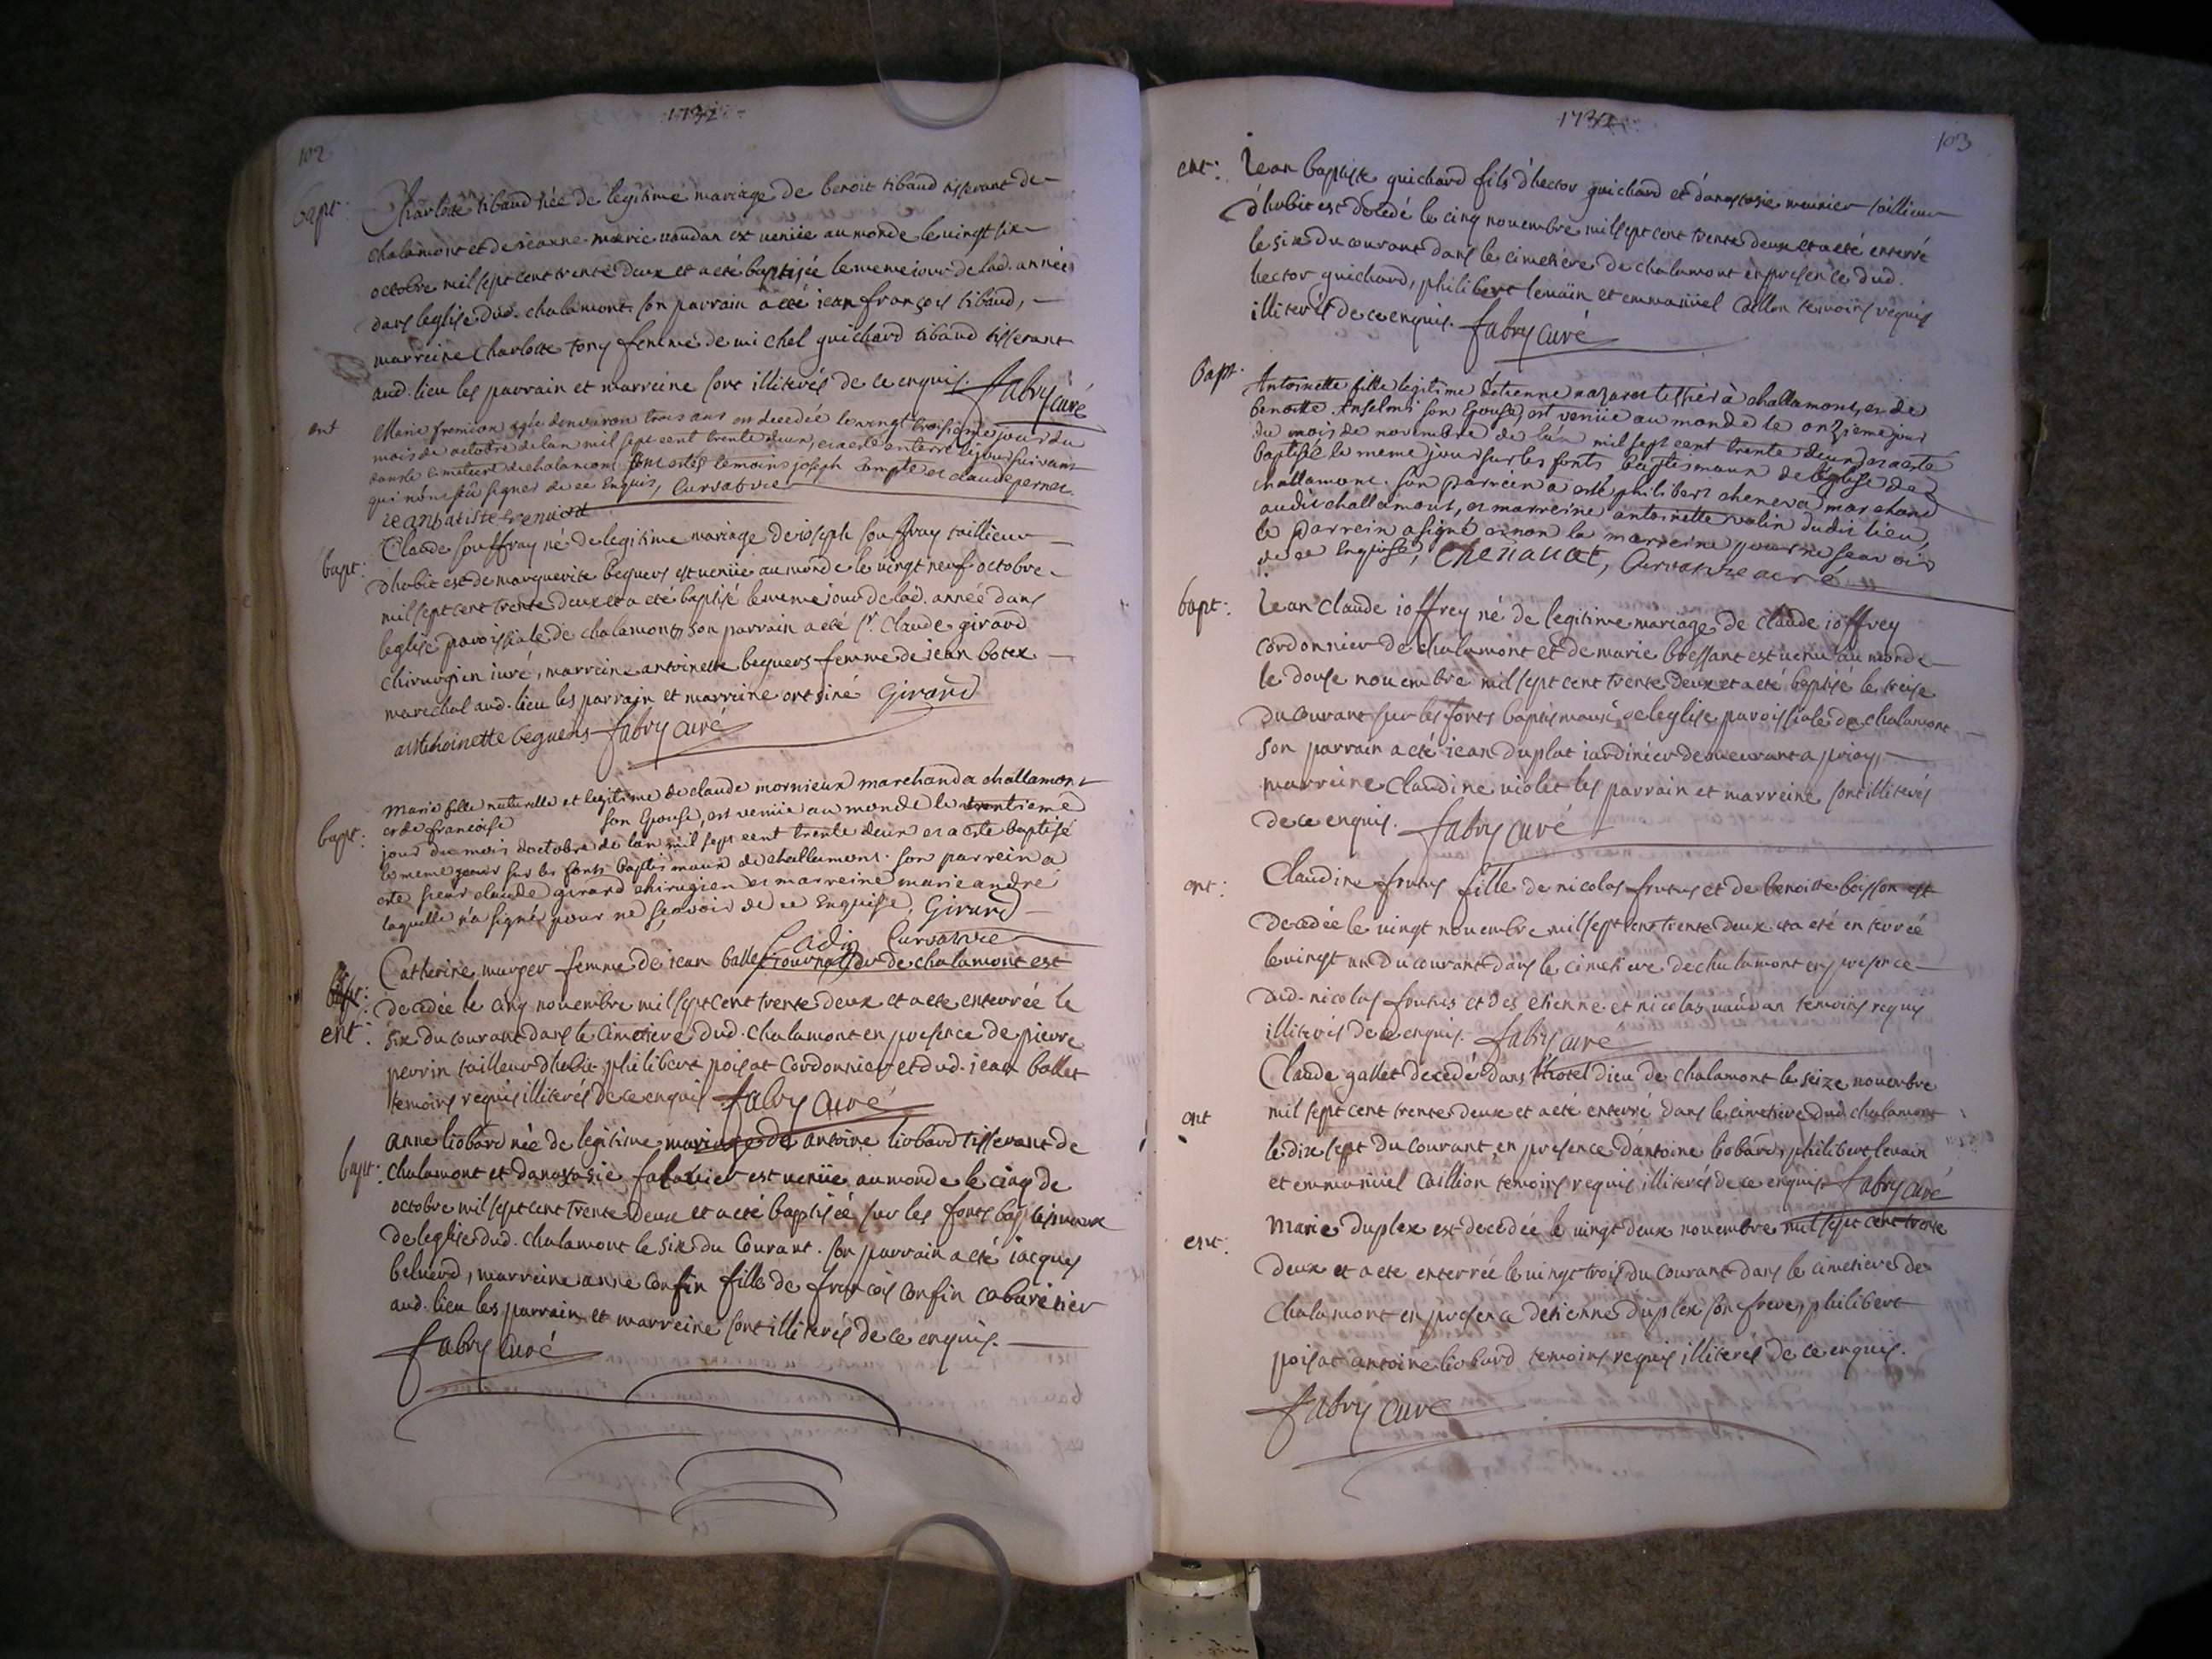 1732
102
bapt:
Charlotte tibaud née de legitime mariage de benoit tibaud tisserant de
chalamont et de jeanne marie vaudan est venüe au monde le vingt six
octobre mil sept cent trente deux et a eté baptisée le meme jour de lad. année
dans leglise dud. chalamont son parrain a eté jean françois tibaud,
marreine charlotte tony femme de michel guichard tibaud tisserant
aud. lieu les parrain et marreine sont illiterés de ce enquis. fabry curé
ent
Marie fremion agée denviron trois ans est decedée le vingt troisieme jour du
mois de octobre de lan mil sept cent trente deux, et a esté enterré le jour suivant
dans le cimetiere de chalamont sont estés temoins joseph compte et claude perner
qui n'ont sçu signer de ce enquis, Curvat vic
jean batiste fremion
bapt:
Claude souffray né de legitime mariage de joseph souffray taillieur
dhabit et de marguerite beguens est venüe au monde le vingt neuf octobre
mil sept cent trente deux et a eté baptisé le meme jour de lad. année dans
leglise paroissiale de chalamont, son parrain a eté sr. claude girard
chirurgien juré, marreine antoinette beguens femme de jean botex
marechal aud. lieu les parrain et marreine ont siné Girard
anthoinette beguens fabry curé
bapt:
Marie fille naturelle et legitime de claude mornieux marchand a challamont
et de francoise son Epouse, est venüe au monde le trentieme
jour du mois doctobre de lan mil sept cent trente deux et a esté baptisé
le meme jour sur les fonts baptismaux de challamont. son parrein a
esté sieur claude girard chirugien et marreine marie andré
laquelle n'a signé pour ne sçavoir de ce Enquise, Girard
Curvat vic
Catherine murger femme de jean ballet journallier de chalamont est
ent:
decedée le cinq novembre mil sept cent trente deux et a eté enterrée le
six du courant dans le cimetiere dud. chalamont en presence de pierre
perrin tailleur dhabit, philibert poisat cordonnier et dud. jean ballet
temoins requis illiterés de ce enquis. fabry curé
bapt:
anne liobard née de legitime mariage de antoine liobard tisserant de
chalamont et danastasie falavier est venüe au monde le cinq de
octobre mil sept cent trente deux et a eté baptisée sur les fonts baptismaux
de leglise dud. chalamont le six du Courant. son parrain a eté jacques
beluerd, marreine anne confin fille de françois confin cabaretier
aud. lieu les parrain et marreine sont illiterés de ce enquis.
fabry curé
1732
103
ent:
Jean baptiste guichard fils d'hector guichard et d'anastasie meunier taillieur
d'habit est decedé le cinq novembre mil sept cent trente deux et a eté enterré
le six du courant dans le cimetière de chalamont en presence dud.
hector guichard, philibert levain et emmanüel Caillon temoins requis
illiterés de ce enquis. fabry curé
Bapt:
Antoinette fille legitime d'etienne nazaret tissier à challamont, et de
benoitte Anselmi son Epouse, est venüe au monde le onzieme jour
du mois de novembre de l'an mil sept cent trente deux, et a esté
baptisée le meme jour sur les fonts baptismaux de l'église de
challamont. son parrein a esté philibert cheneva marchand
audit challamont, et marreine antoinette valin dudit lieu,
le parrein a signé et non la marreine pour ne sçavoir
de ce Enquise, Chenavat, Curvat vic
bapt:
Jean claude joffrey né de legitime mariage de claude joffrey
Cordonnier de chalamont et de marie bressant est venu au monde
le douse novembre mil sept cent trente deux et a eté baptisé le treise
du courant sur les fonts baptismaux de leglise paroissiale de chalamont
son parrain a eté jean duplat jardinier demeurant a priay,
marreine claudine violet les parrain et marreine sont illiterés
de ce enquis. fabry curé
ent:
Claudine frutus fille de nicolas frutus et de benoitte boisson est
decedée le vingt novembre mil sept cent trente deux et a eté enterrée
le vingt un du courant dans le cimetiere de chalamont en presence
dud. nicolas frutus et des etienne et nicolas vaudan temoins requis
illiterés de ce enquis. fabry curé
ent
Claude gallet decedé dans l'hotel dieu de chalamont le seize novembre
mil sept cent trente deux et a eté enterré dans le cimetiere dud. chalamont
le dix sept du courant en presence d'antoine liobard, philibert levain
et emmanüel Caillion temoins requis illiterés de ce enquis. fabry curé
ent:
Marie duplex est decedée le vingt deux novembre mil sept cent trente
deux et a ete enterrée le vingt trois du courant dans le cimetiere de
chalamont en presence detienne duplex son frere, philibert
poisat antoine liobard temoins requis illiterés de ce enquis.
fabry curé